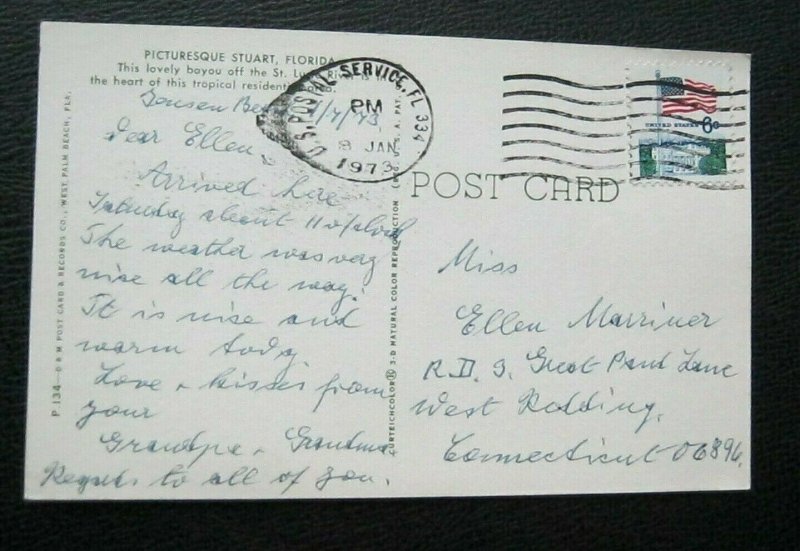 PICTURESQUE STUART, FLORIDA
This lovely bayou off the St. Lucie River is in
the heart of this tropical resident
Jensen Bea 1/7/73
Dear Ellen
Arrived here
Saturday about 11 o'clock
The weather was very
nise all the way.
It is nise and
warm tody
Love + kisses from
your
Grandpa + Grandma
Regards to all of you.
P 134—D & M POST CARD & RECORDS CO., WEST PALM BEACH, FLA.
CURTEICHCOLOR® 3-D NATURAL COLOR REPRODUCTION U. S. A. PAT.
U. S. POSTAL SERVICE, FL 334
PM
8 JAN
1973
UNITED STATES 6c
POST CARD
Miss
Ellen Marriner
R.D. 3, Great Pond Lane
West Redding,
Connecticut 06896,